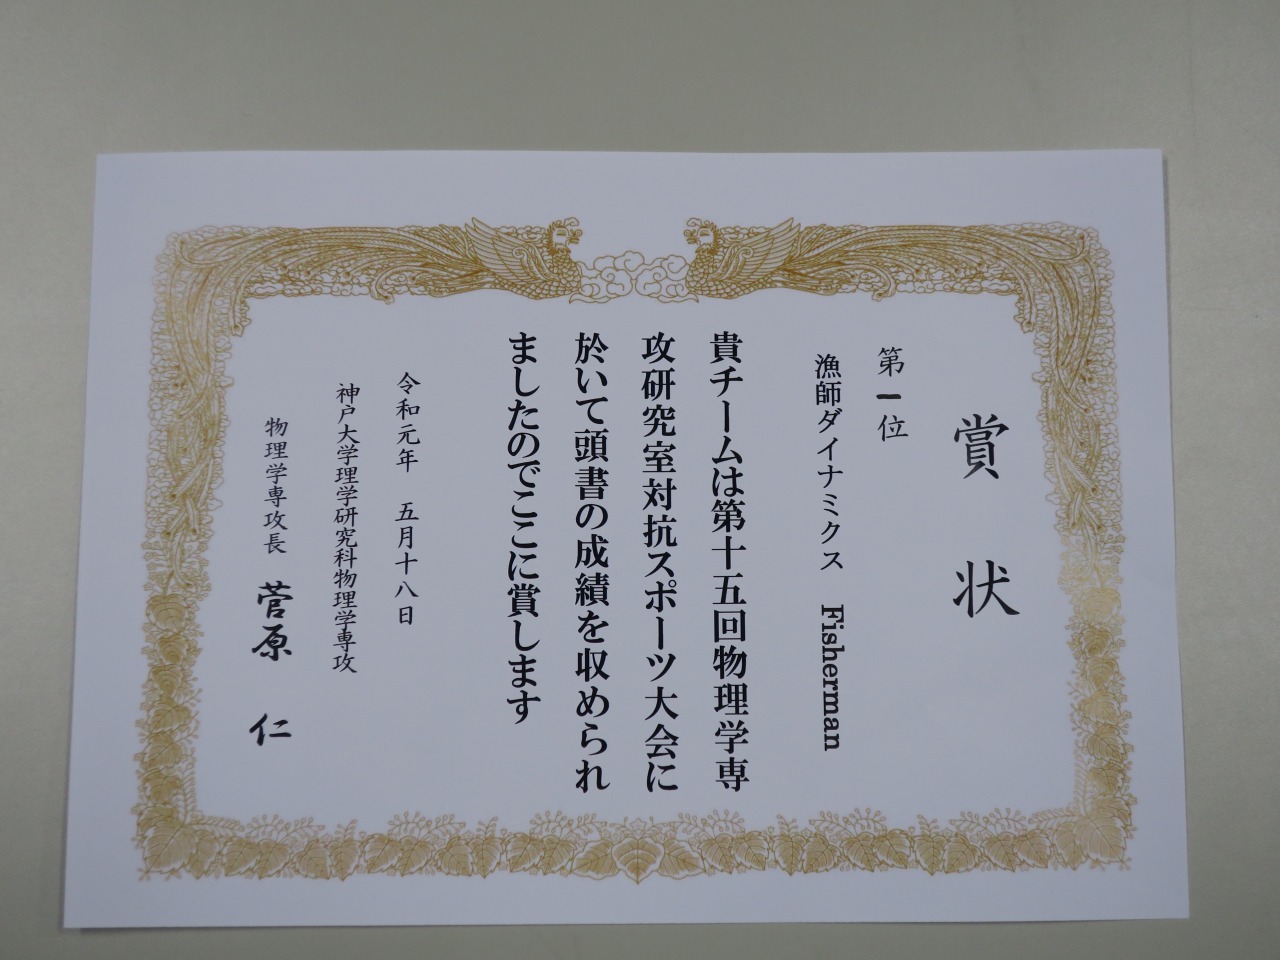 賞状
第一位
漁師ダイナミクス Fisherman
貴チームは第十五回物理学専
攻研究室対抗スポーツ大会に
於いて頭書の成績を収められ
ましたのでここに賞します
令和元年 五月十八日
神戸大学理学研究科物理学専攻
物理学専攻長 菅原 仁